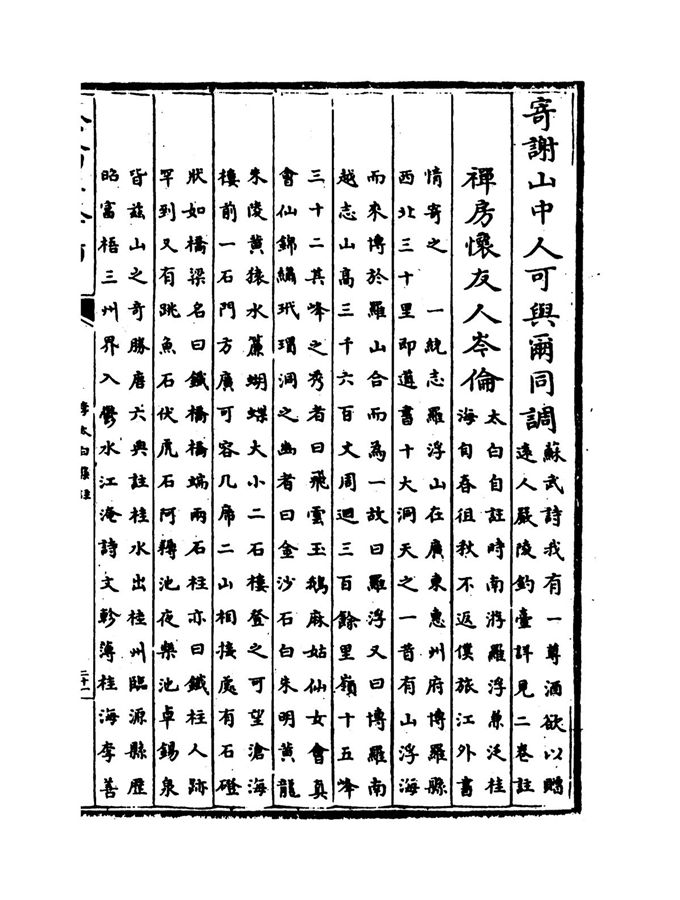 寄謝山中人可與爾同調
蘇武詩我有一尊酒欲以贈
遠人嚴陵釣臺詳見二卷註
禪房懷友人岑倫
太白自註時南游羅浮兼泛桂
海旬春徂秋不返僕旅江外書
情寄之　一統志羅浮山在廣東惠州府博羅縣
西北三十里即道書十大洞天之一昔有山浮海
而來博於羅山合而為一故曰羅浮又曰博羅南
越志山高三千六百丈周迴三百餘里嶺十五峰
三十二其峰之秀者曰飛雲玉鵝麻姑仙女會真
會仙錦繡玳瑁洞之幽者曰金沙石白朱明黃龍
朱陵黃猿水簾蝴蝶大小二石樓登之可望滄海
樓前一石門方廣可容几席二山相接處有石磴
狀如橋梁名曰鐵橋橋端兩石柱亦曰鐵柱人跡
罕到又有跳魚石伏虎石阿耨池夜樂池卓錫泉
皆茲山之奇勝唐六典註桂水出桂州臨源縣歷
昭富梧三州界入鬱水江淹詩文軫薄桂海李善
李太白集註
二十一